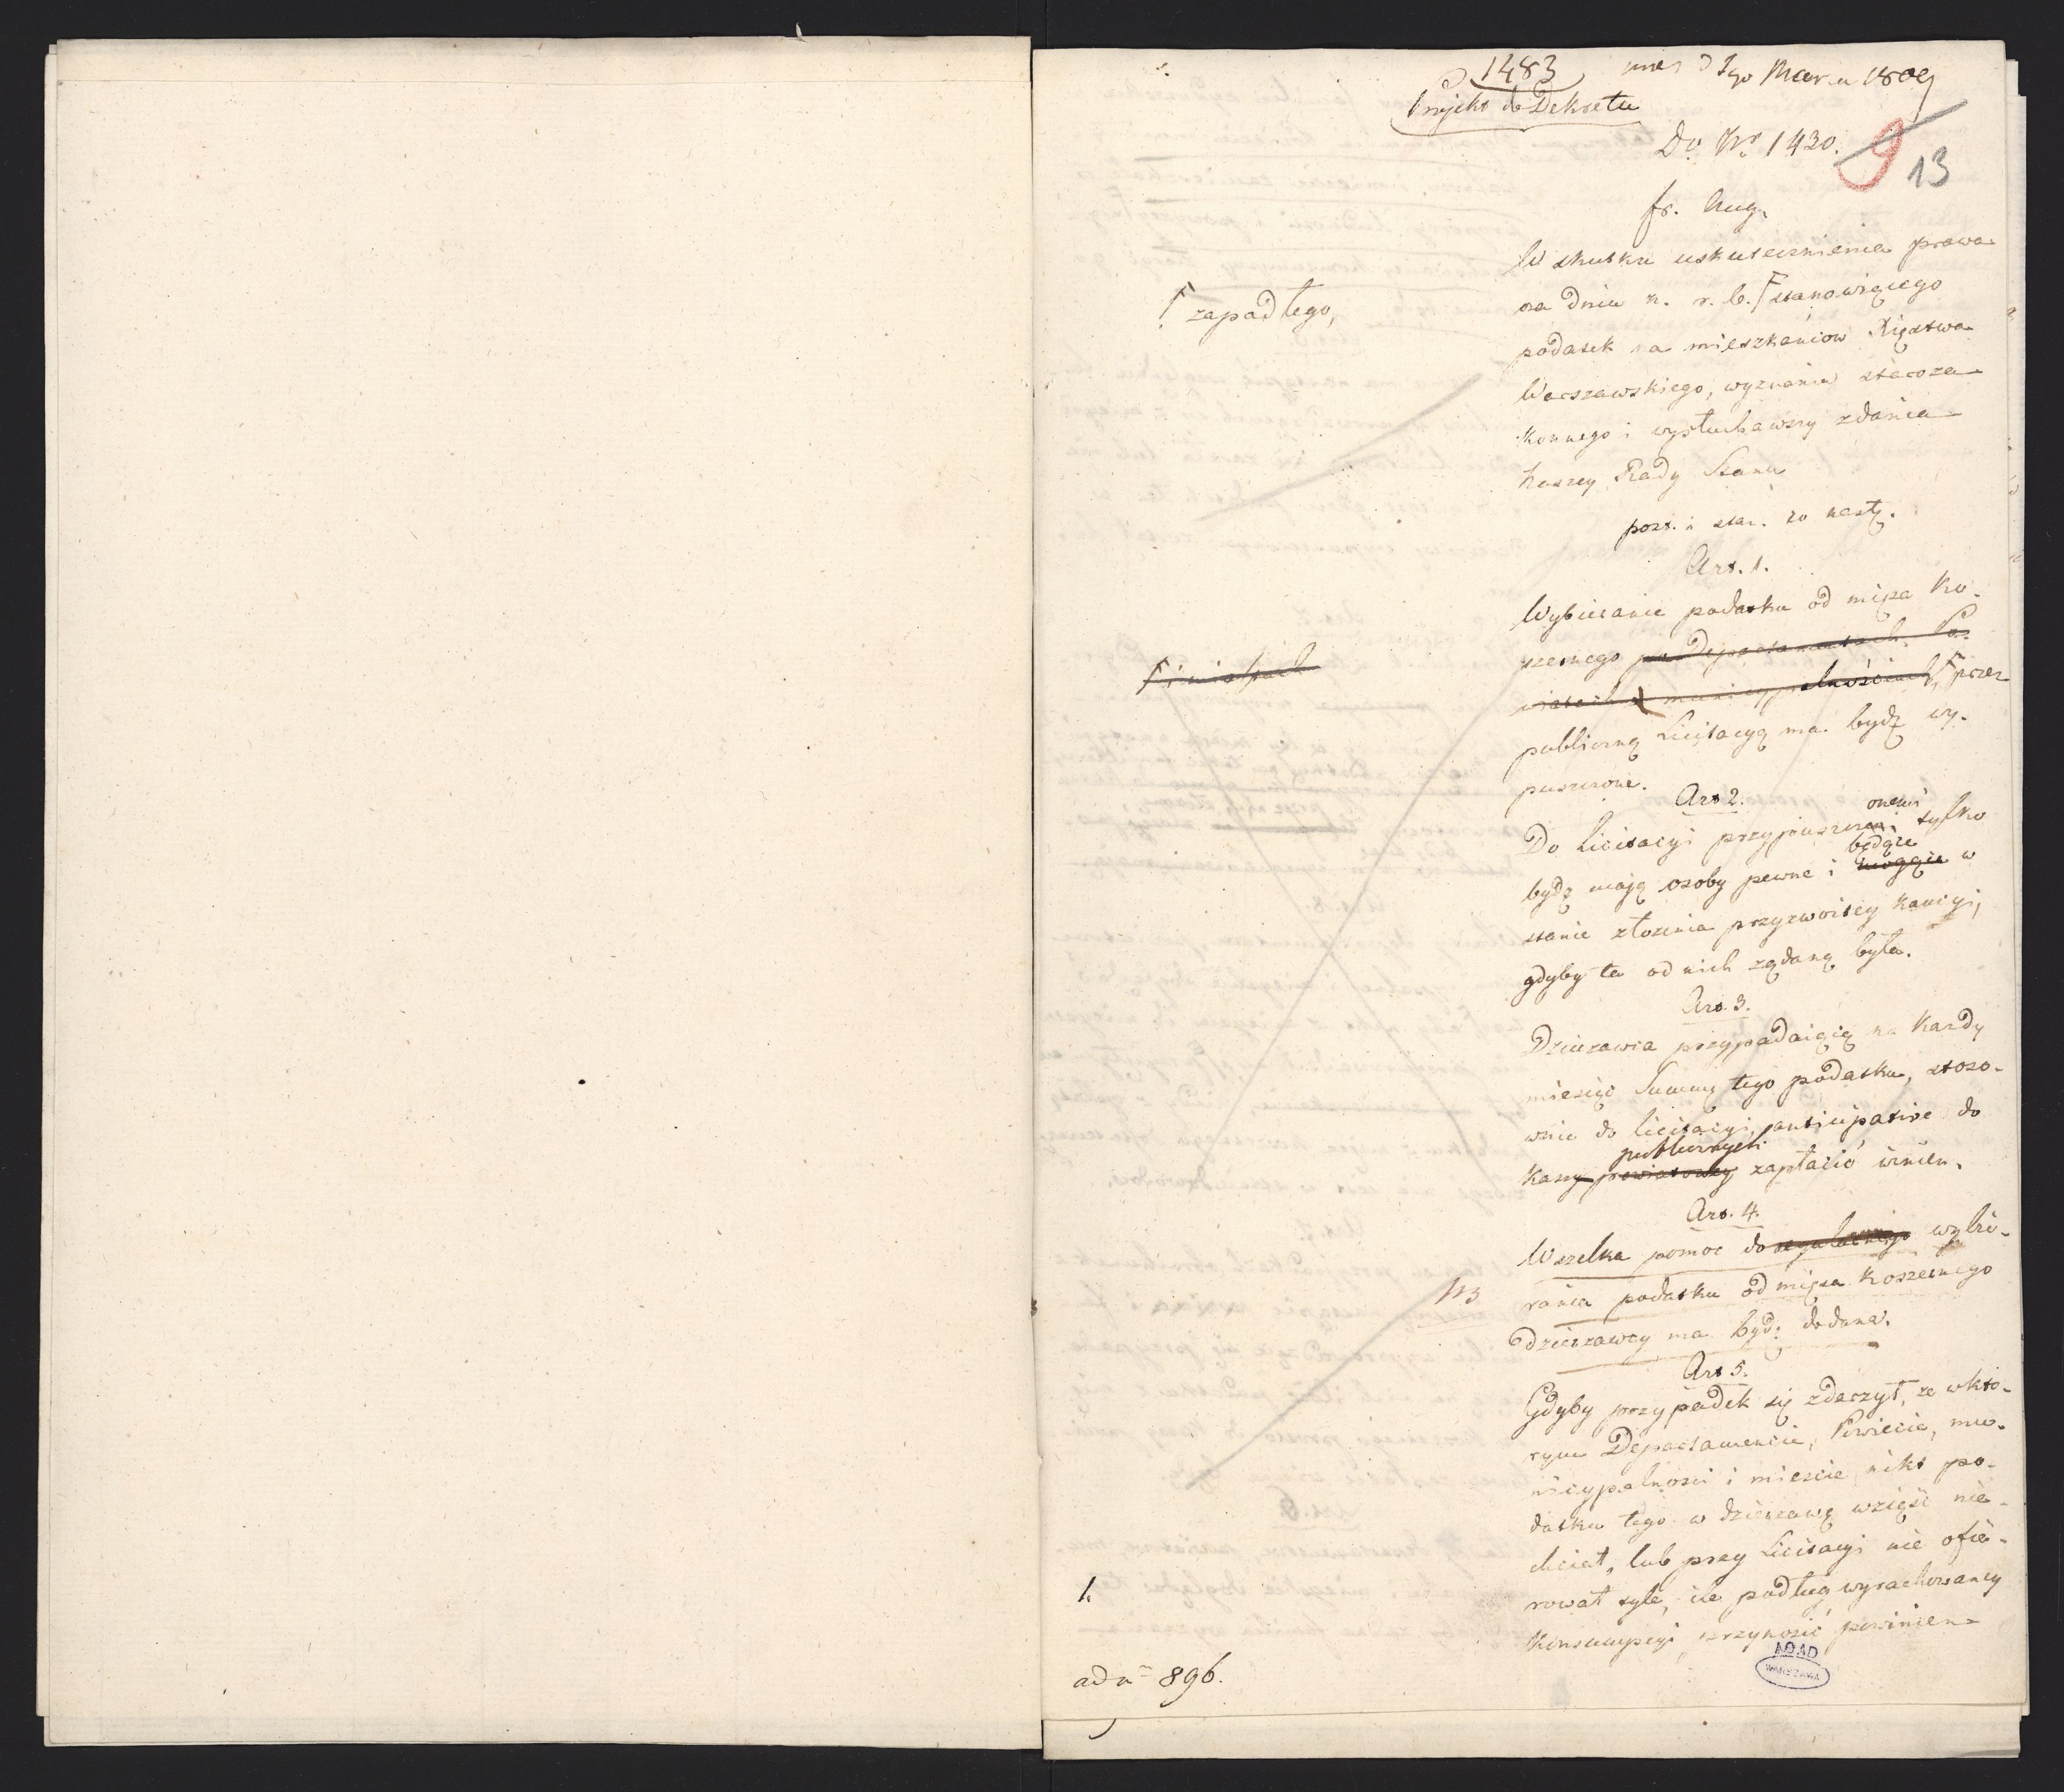 1483
Projekt do Dekretu
3 1go Marca 1809
Do Nr 1430.
9
13
fr. Aug.
W skutku uskutecznienia prawa
na dniu n. r. b. F stanowiącego
F zapadłego,
podatek na mieszkańców Xięstwa
Warszawskiego, wyznania staroza-
konnego i wysłuchawszy zdania
Naszey Rady Stanu
post. i stan. co nastę.
Art. 1.
Wybieranie podatku od mięsa Ko-
szernego po Departamentach Po-
F i miastach
wiatach i municypalnościach, F przez
publiczną Licitacyą ma bydź wy-
puszczone.
Art 2.
onemi
Do Licitacyi przypuszczeni tylko
będące
bydź mają osoby pewne i mogące w
stanie złożenia przyzwoitey kaucyi,
gdyby ta od nich żądaną była.
Art. 3.
Dzierzawca przypadaiącą na każdy
miesiąc Summę tego podatku, stoso-
wnie do licitacyi, anticipative do
publicznych
Kassy powiatowey zapłacić winien.
Art. 4.
Wszelka pomoc do regularnego wybie-
rania podatku od mięsa Koszernego
dzierzawcy ma bydź dodana.
Art 5.
Gdyby przypadek się zdarzył, że w któ-
rym Departamencie, Powiecie, mu-
nicypalności i mieście nikt po-
datku tego w dzierzawę wziąść nie-
chciał, lub przy Licitacyi nie ofia-
rował tyle, ile podług wyrachowaney
Konsumpcyi, przynosić powinien
1.
ad n 896.
AGAD
WARSZAWA